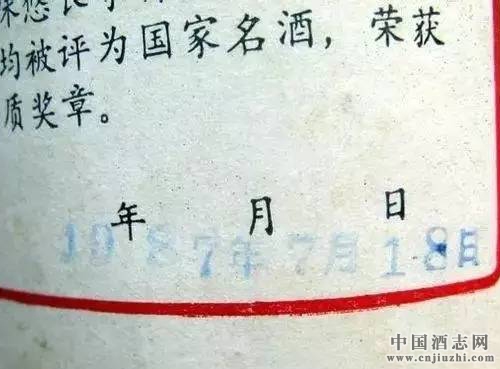 悠长
均被评为国家名酒，荣获
质奖章。
年 月 日
1987年7月18日
中国酒志网
www.cnjiuzhi.com